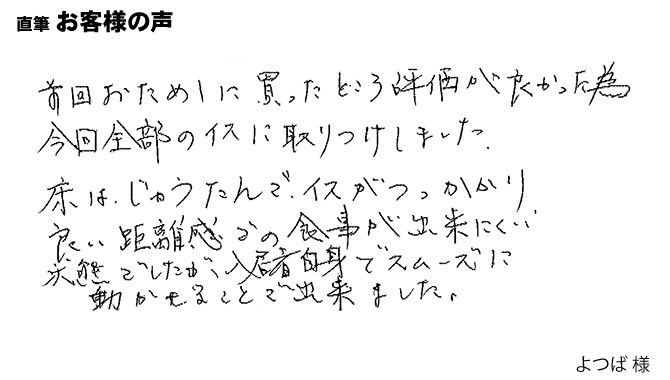 直筆 お客様の声
前回おためしに買ったところ評価が良かった為
今回全部のイスに取りつけしました.
床は.じゅうたんで.イスがつっかかり
良い距離感での食事が出来にくい
状態でしたが、入居者自身でスムーズに
動かせることで出来ました。
よつば 様